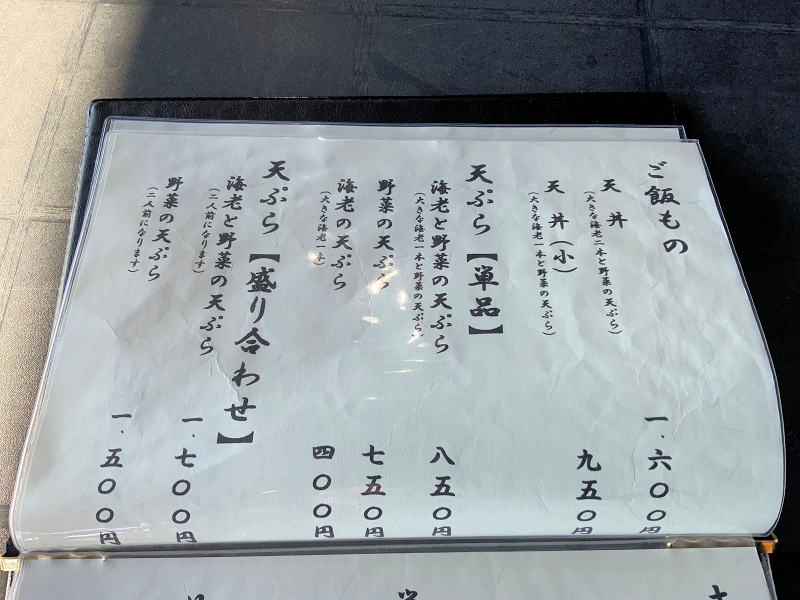 ご飯もの
天丼
(大きな海老二本と野菜の天ぷら)
一、六〇〇円
天丼(小)
(大きな海老一本と野菜の天ぷら)
九五〇円
天ぷら【単品】
海老と野菜の天ぷら
(大きな海老一本と野菜の天ぷら)
八五〇円
野菜の天ぷら
七五〇円
海老の天ぷら
(大きな海老一本)
四〇〇円
天ぷら【盛り合わせ】
海老と野菜の天ぷら
(二人前になります)
一、七〇〇円
野菜の天ぷら
(二人前になります)
一、五〇〇円